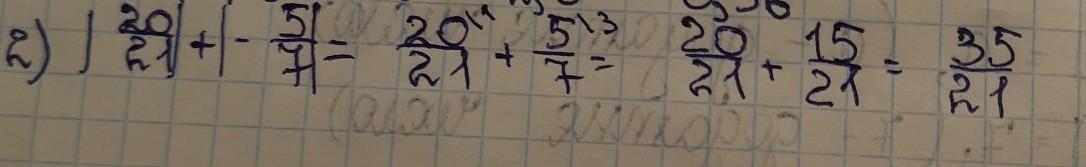 2) |20/21| + |- 5/7| = 20\1/21 + 5\3/7 = 20/21 + 15/21 = 35/21